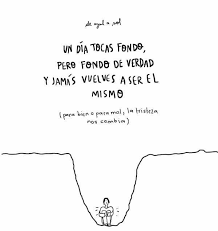 de azul a sol
UN DÍA TOCAS FONDO,
PERO FONDO DE VERDAD
Y JAMÁS VUELVES A SER EL
MISMO
(para bien o para mal, la tristeza
nos cambia)